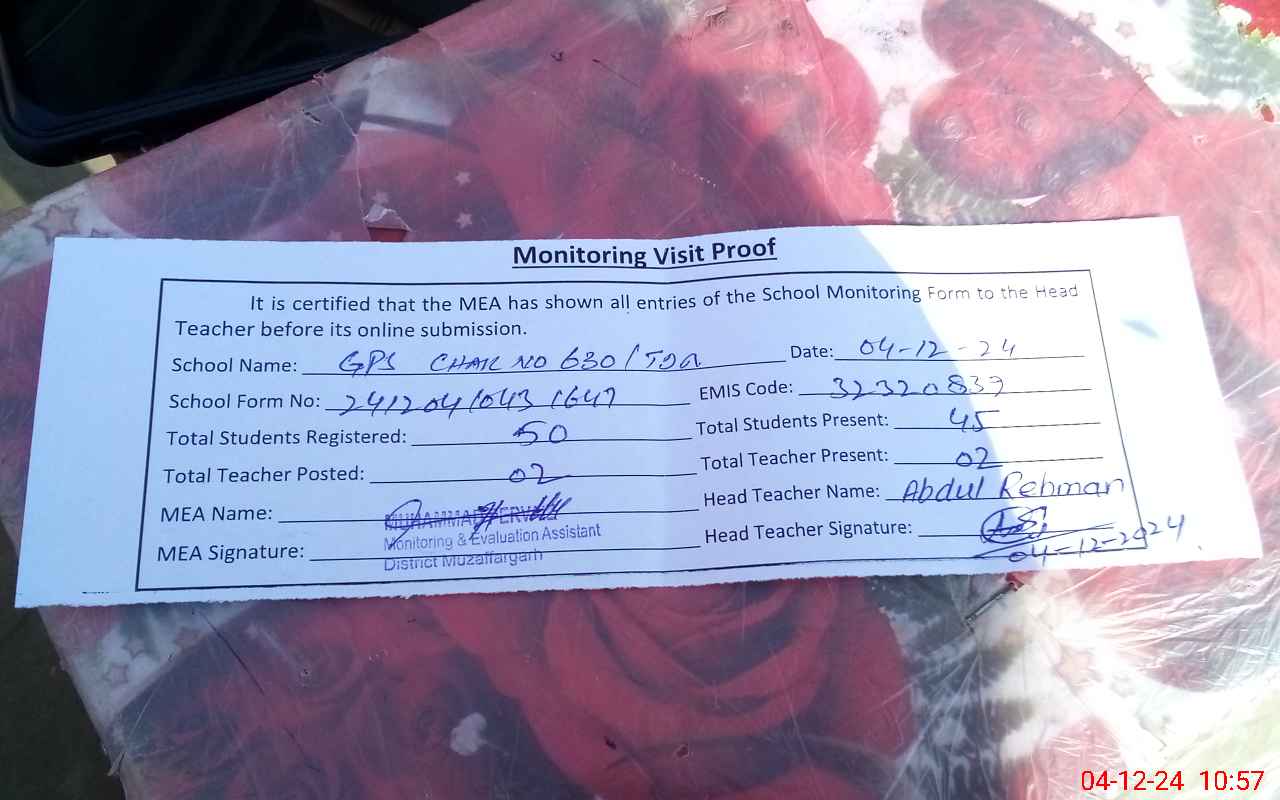 Monitoring Visit Proof
It is certified that the MEA has shown all entries of the School Monitoring Form to the Head
Teacher before its online submission.
School Name: GPS CHAK NO 630/TDA Date: 04-12-24
School Form No: 241204/043/647 EMIS Code: 32320839
Total Students Registered: 50 Total Students Present: 45
Total Teacher Posted: 02 Total Teacher Present: 02
MEA Name: MUHAMMAD Head Teacher Name: Abdul Rehman
Monitoring & Evaluation Assistant
MEA Signature: Head Teacher Signature:
District Muzaffargarh 04-12-2024
04-12-24 10:57